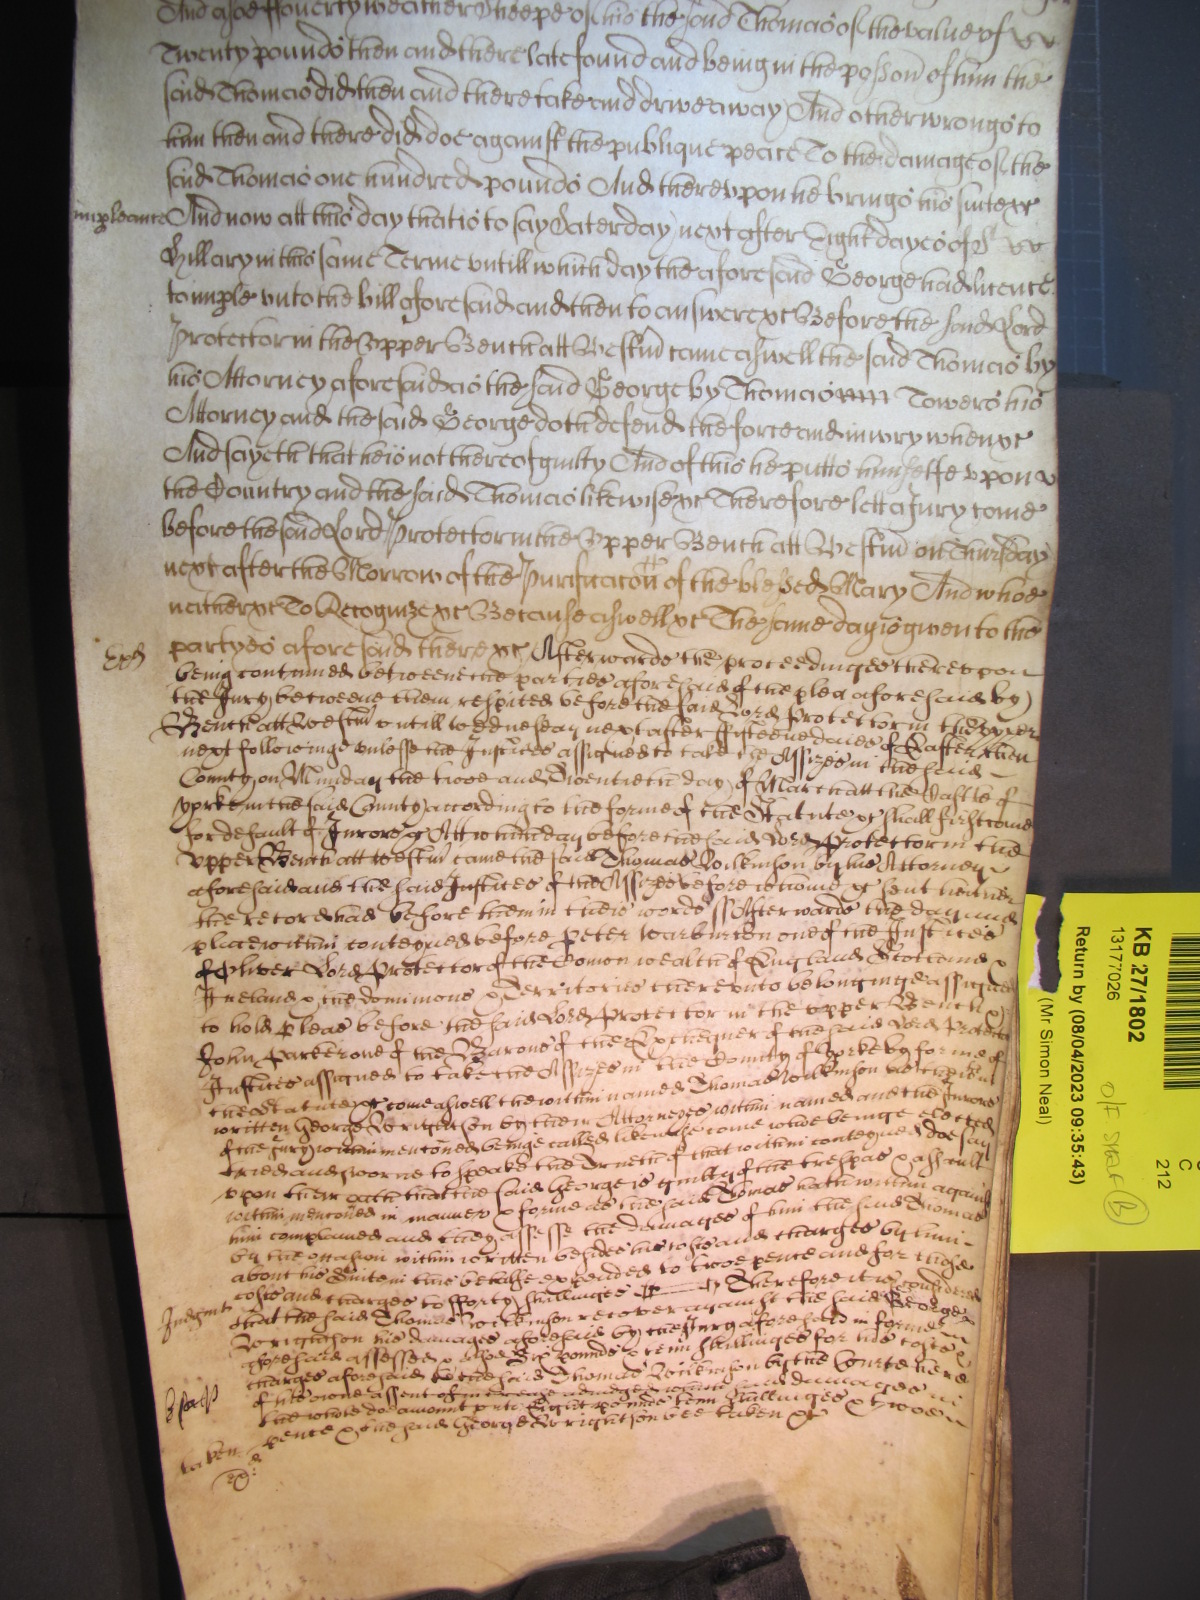 And also fforty weather sheepe of his the said Thomas of the value of xx
Twenty pounds then and there late found and being in the possion of him the
said Thomas did then and there take and drive away And other wrongs to
him then and there did doe against the publique peace To the damage of the
said Thomas one hundred pounds And thereupon he brings his suite &c
imparlance And now att this day that is to say Saterday next after Eight dayes of St
Hillary in this same Terme untill which day the aforesaid George had licence
to imple unto the bill aforesaid and then to answere &c Before the said Lord
Protector in the Upper Bench att Westm came aswell the said Thomas by
his Attorney aforesaid as the said George by Thomas Towers his
Attorney and the said George doth defend the force and iniury when &c
And sayeth that he is not thereof guilty And of this he putts himselfe upon
the Country and the said Thomas likewise &c Therefore lett a Jury come
before the said Lord Protector in the Upper Bench att Westm on Thursday
next after the Morrow of the Purificacon of the blessed Mary And whoe
neither &c To Recognize &c Because aswell &c The same day is given to the
partyes aforesaid there &c Afterwards the proceedinges thereupon
being continued betweene the parties aforesaid of the plea aforesaid by
the Jury betweene them respited before the said Lord Protector in the upper
Bench att Westm untill Wednesday next after ffifteene daies of Easter then
next followinge unlesse the Justices assigned to take the Assizes in the said
County on Munday the twoe and Twentieth day of March att the Castle of
Yorke in the said County according to the forme of the Statute &c shall first come
for default of Jurors &c Att which day before the said Lord Protector in the
upper Bench att Westm came the said Thomas Wilkinson by his Attorney
aforesaid and the said Justices of the Assizes before whome &c sent hither
the record had before them in theis words ss Afterwards the day and
place within conteyned before Peter Warburton one of the Justices
of Oliver Lord Protector of the Comon wealth of England Scotland &
Ireland & the dominions & Territories thereunto belonginge assigned
to hold pleas before the said Lord Protector in the upper Bench &
John Parker one of the Barons of the Exchequer of the said Lord Protector
Justices assigned to take the Assizes in the County of Yorke by forme of
the statute &c come aswell the within named Thomas Wilkinson as the within
written George Wrightson by their Attorneyes within named and the Jurors
of the Jury within menconed beinge called likewise come whoe beinge elected
tried and sworne to speake the Trueth of that within conteyned doe say
upon their oath that the said George is guilty of the trespas & assault
within menconed in manner & forme as the said Thomas hath within against
him complained and they assesse the damages of him the said Thomas
by the occasion within written besides his costs and charges by him
about his Suite in this behalfe expended to twoe pence and for those
costs and charges to fforty shillinges Therefore it is considered
Judgmt that the said Thomas Wilkinson recover against the said George
Wrightson his damages aforesaid by the Jury aforesaid in forme
aforesaid assessed & alsoe Six pounds & tenn shillinges for his costs &
charges aforesaid to the said Thomas Wilkinson by the Courte here
of his owne assent of increase adiudged which said damages in
the whole doe amount unto Eight pounds tenn shillinges & twoe
pence & the said George Wrightson bee taken &c
taken
KB 27/1802
13177026
Return by (08/04/2023 09:35:43)
(Mr. Simon Neal)
C
212